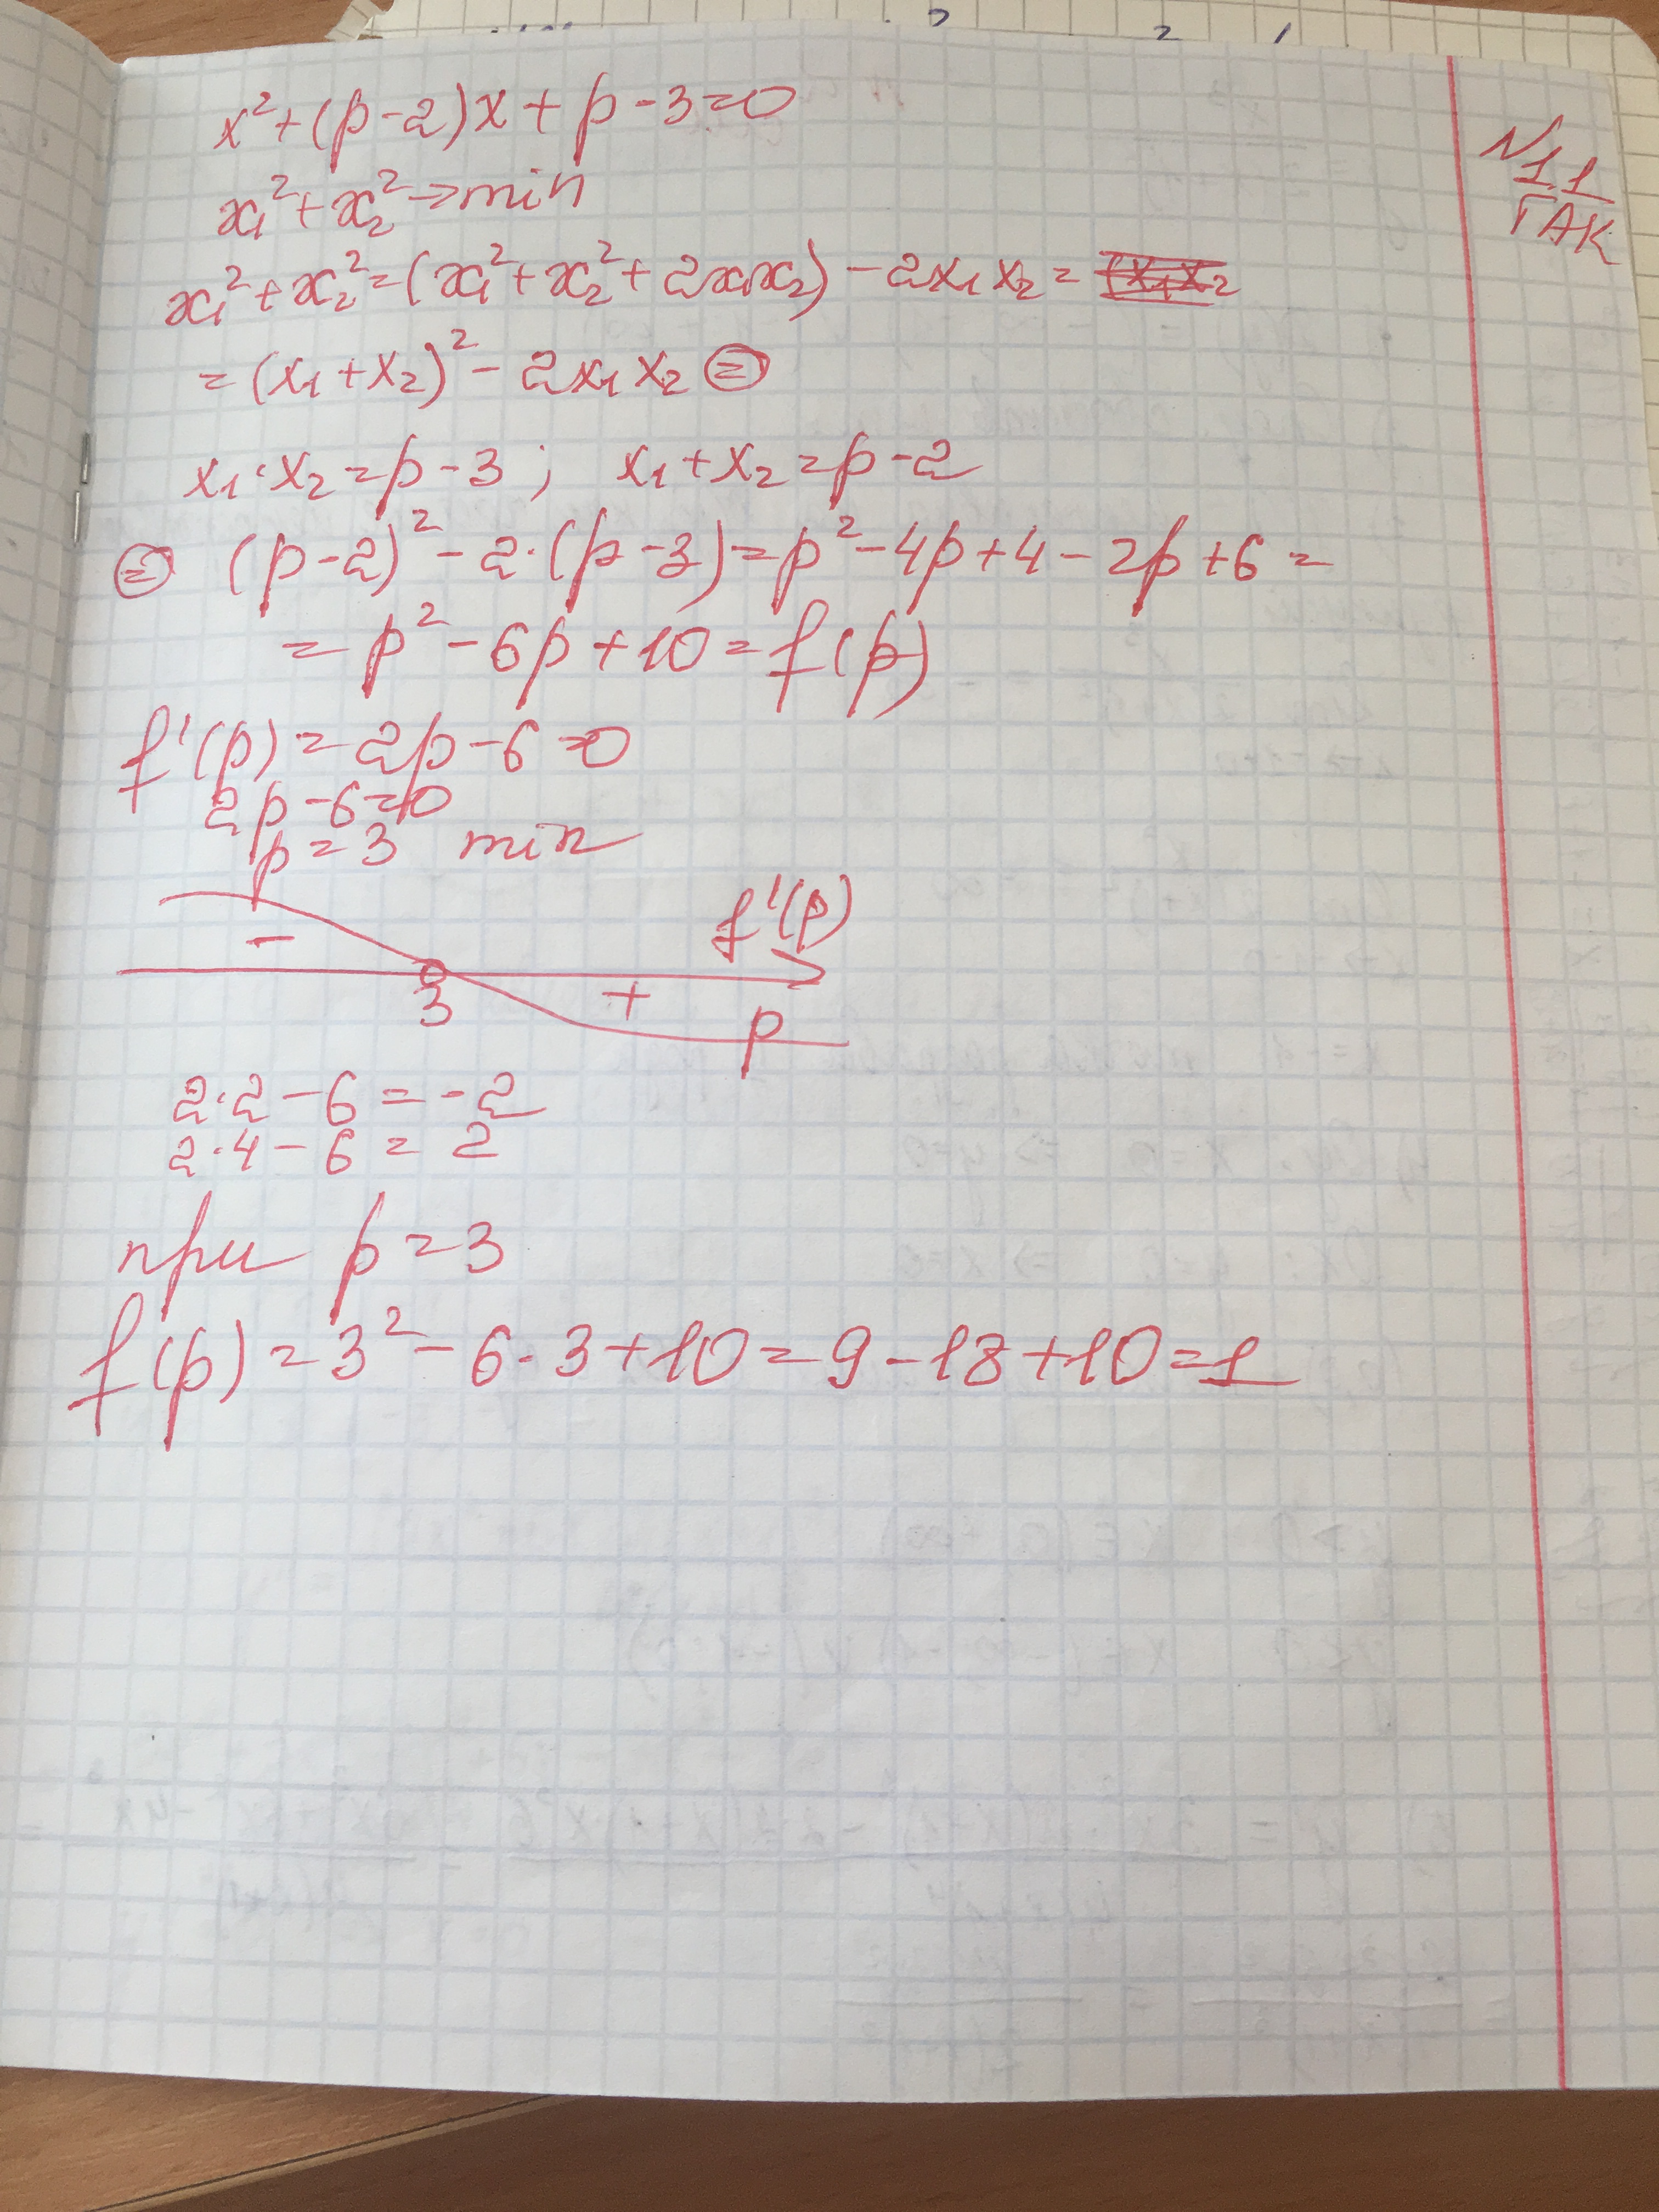 x² + (p-2)x + p - 3 = 0
x₁² + x₂² → min
x₁² + x₂² = (x₁² + x₂² + 2x₁x₂) - 2x₁x₂ =
= (x₁ + x₂)² - 2x₁x₂ ⊜
x₁·x₂ = p - 3 ; x₁ + x₂ = p - 2
⊜ (p-2)² - 2·(p-3) = p² - 4p + 4 - 2p + 6 =
= p² - 6p + 10 = f(p)
f'(p) = 2p - 6 = 0
2p - 6 = 0
p = 3 min
f'(p)
-
3 +
p
2·2 - 6 = -2
2·4 - 6 = 2
при p = 3
f(p) = 3² - 6·3 + 10 = 9 - 18 + 10 = 1
N1.1
ГАК